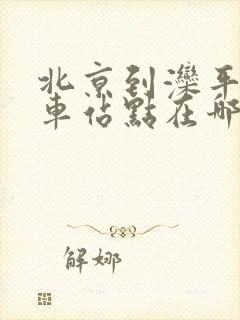 北京到灤平
車站點在哪
解娜